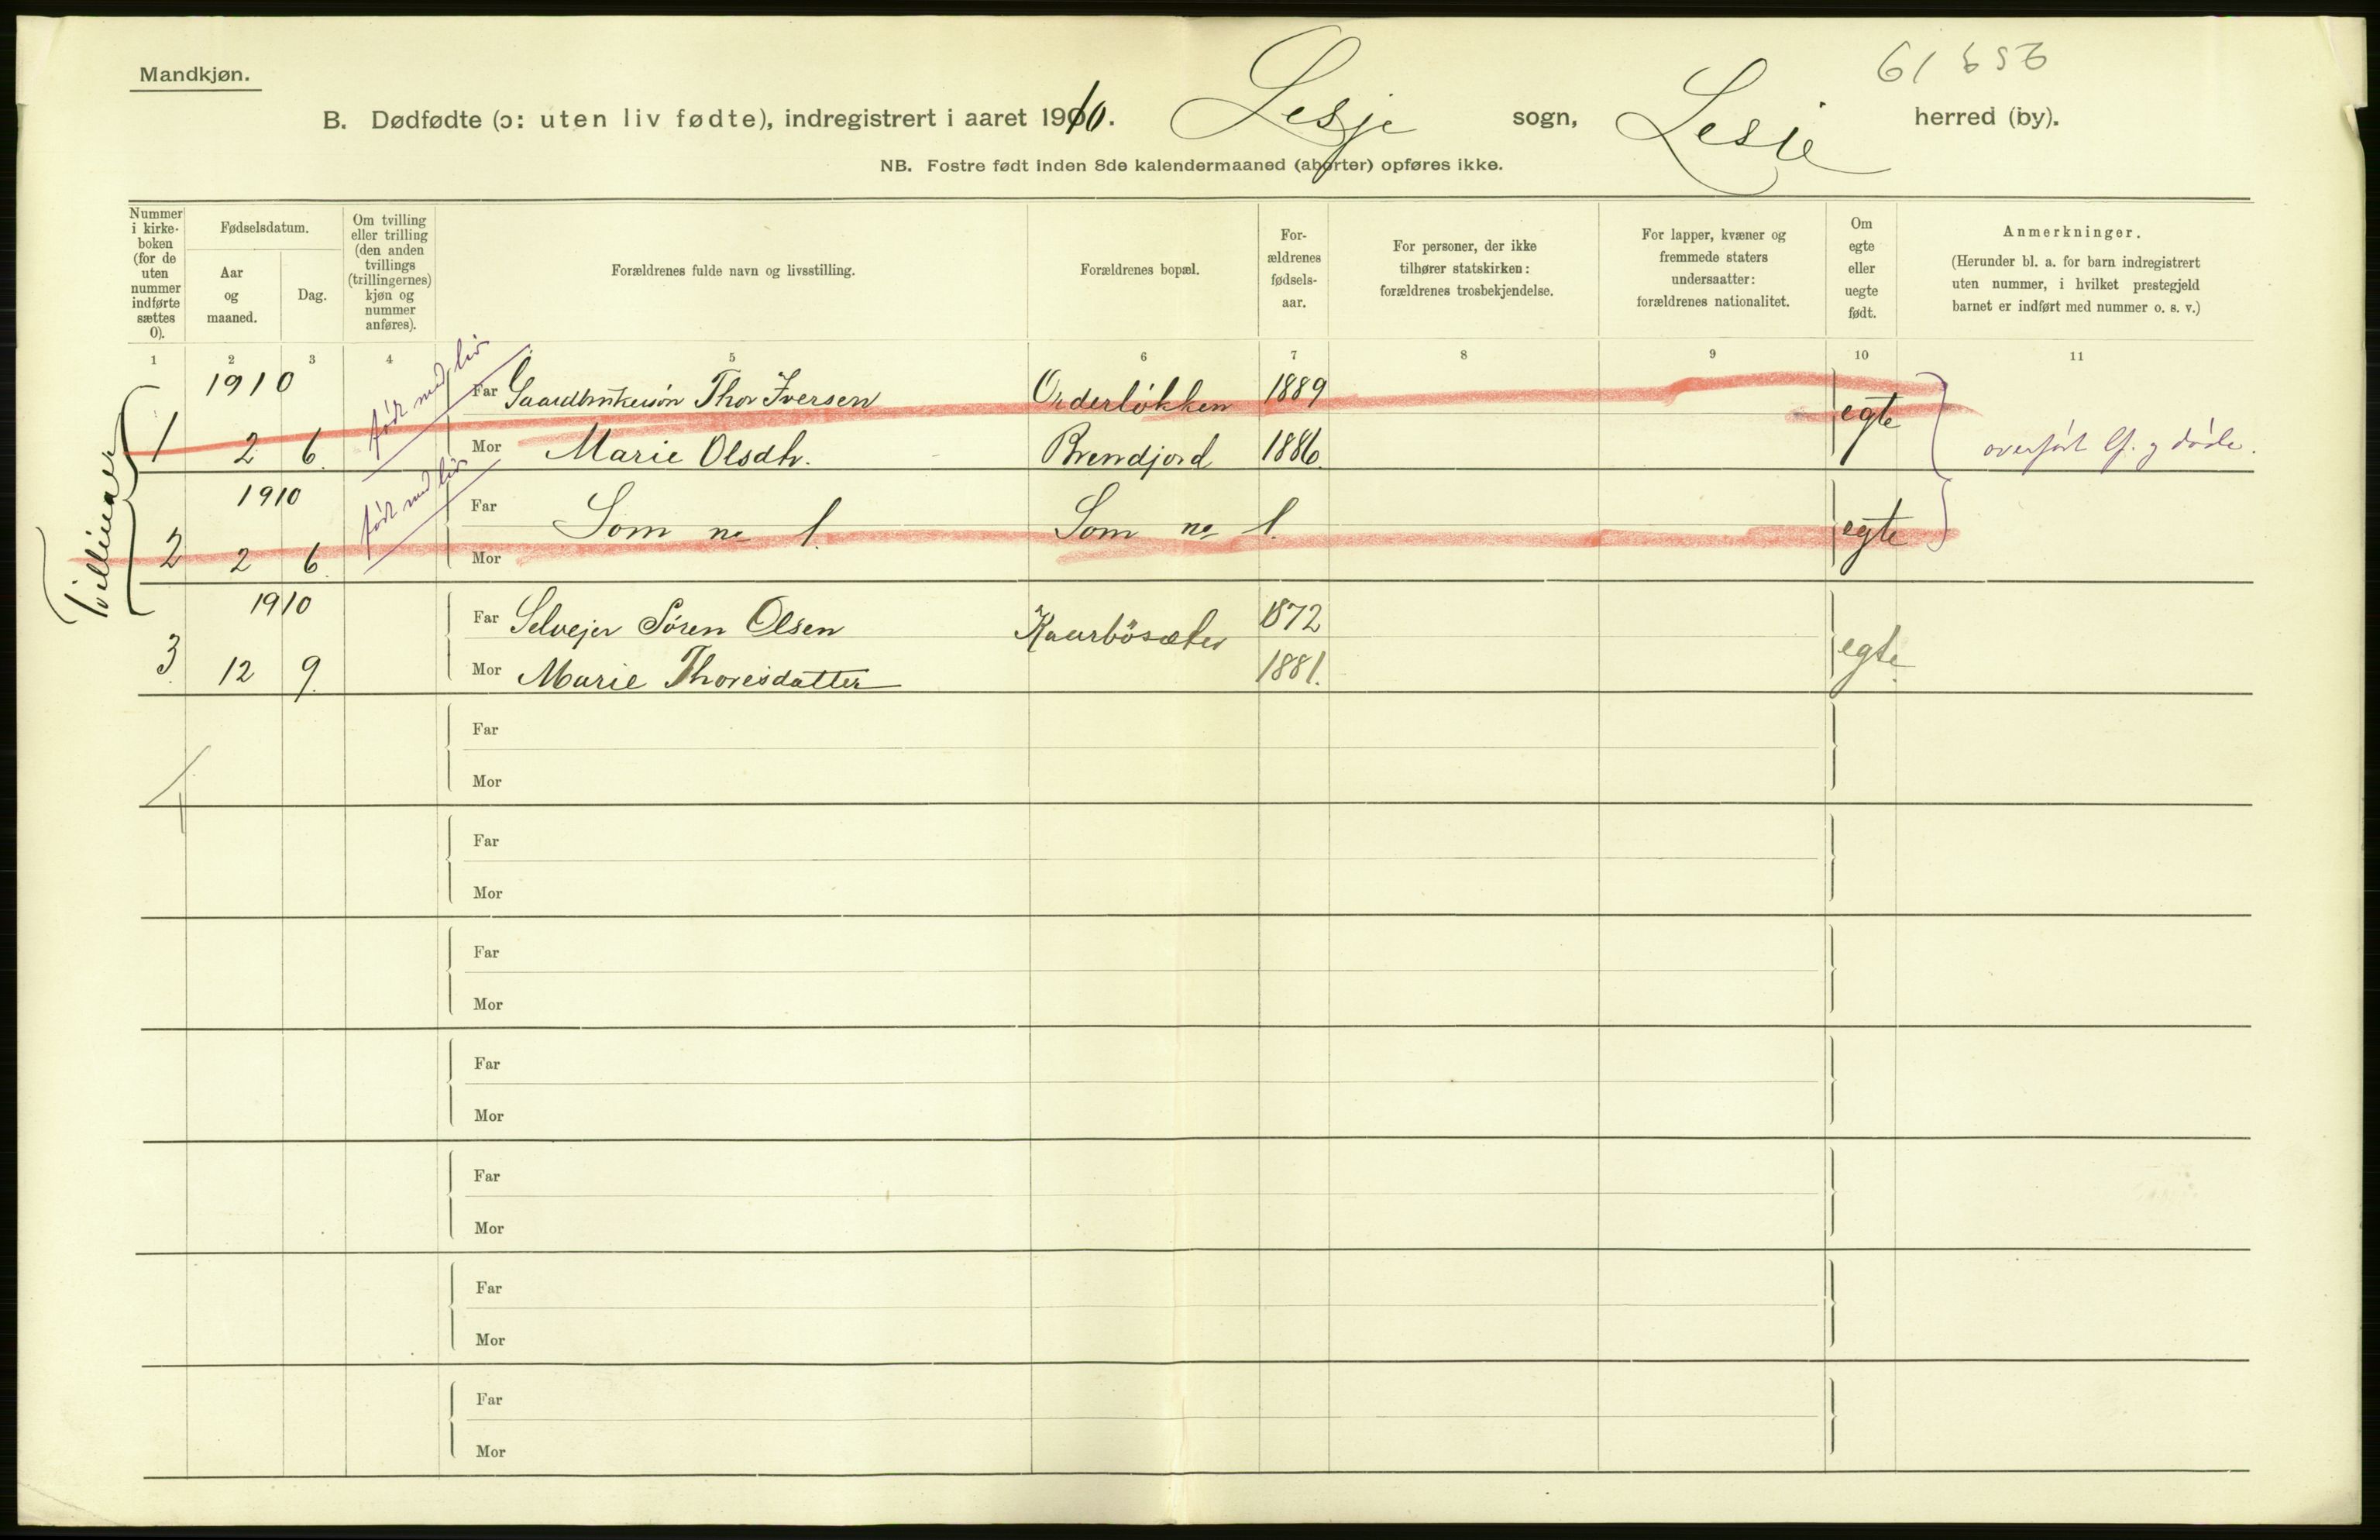 Mandkjøn.
B. Dødfødte (ɔ: uten liv fødte), indregistrert i aaret 1910. Lesje sogn, Lesje herred (by).
NB. Fostre født inden 8de kalendermaaned (aborter) opføres ikke.
Nummer i kirke-boken (for de uten nummer indførte sættes 0).
Fødselsdatum.
Aar og maaned.
Dag.
Om tvilling eller trilling (den anden tvillings (trillingernes) kjøn og nummer anføres).
Forældrenes fulde navn og livsstilling.
Forældrenes bopæl.
For-ældrenes fødsels-aar.
For personer, der ikke tilhører statskirken: forældrenes trosbekjendelse.
For lapper, kvæner og fremmede staters undersaatter: forældrenes nationalitet.
Om egte eller uegte født.
Anmerkninger.
(Herunder bl. a. for barn indregistrert uten nummer, i hvilket prestegjeld barnet er indført med nummer o. s. v.)
1 2 3 4 5 6 7 8 9 10 11
Tvillinger
1910 født med liv Far Thor Iversen Orderløkken 1889 egte
1 2 6. Mor Marie Olsdtr. Brendjord 1886 overført lf. og døde.
1910 født med liv Far Som no 1. Som no 1. egte
2 2 6. Mor
1910 Far Selvejer Søren Olsen Kaurbösæter 1872 egte.
3. 12 9. Mor Marie Thoresdatter 1881.
Far
Mor
Far
Mor
Far
Mor
Far
Mor
Far
Mor
Far
Mor
Far
Mor